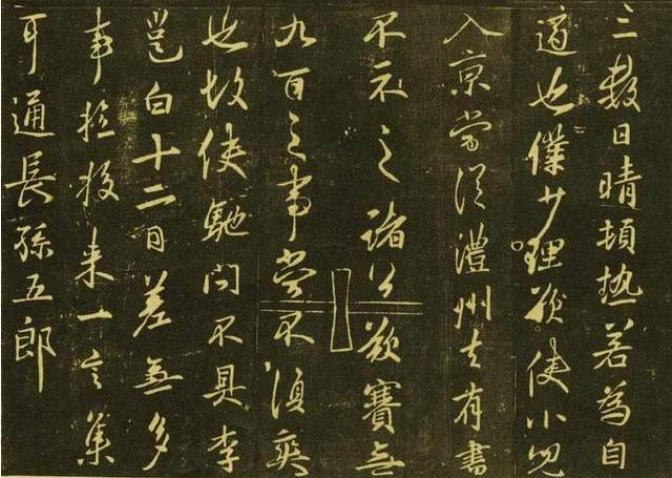 三數日晴頓熱若為自
適也僕少理欲使小兒
入京當從澧州去有書
不示之諸公欲賽無
九百之事當不須爽
也故使馳問不具李
邕白十二日差無多
事投来一言集
耳通長孫五郎